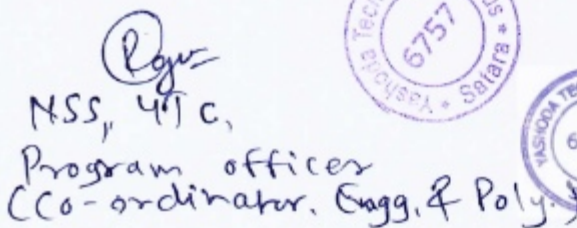 NSS, YTC,
Program officer
(Co-ordinator. Engg. & Poly.)
Yashoda Tech
6757
Satara *
YASHODA TE
6